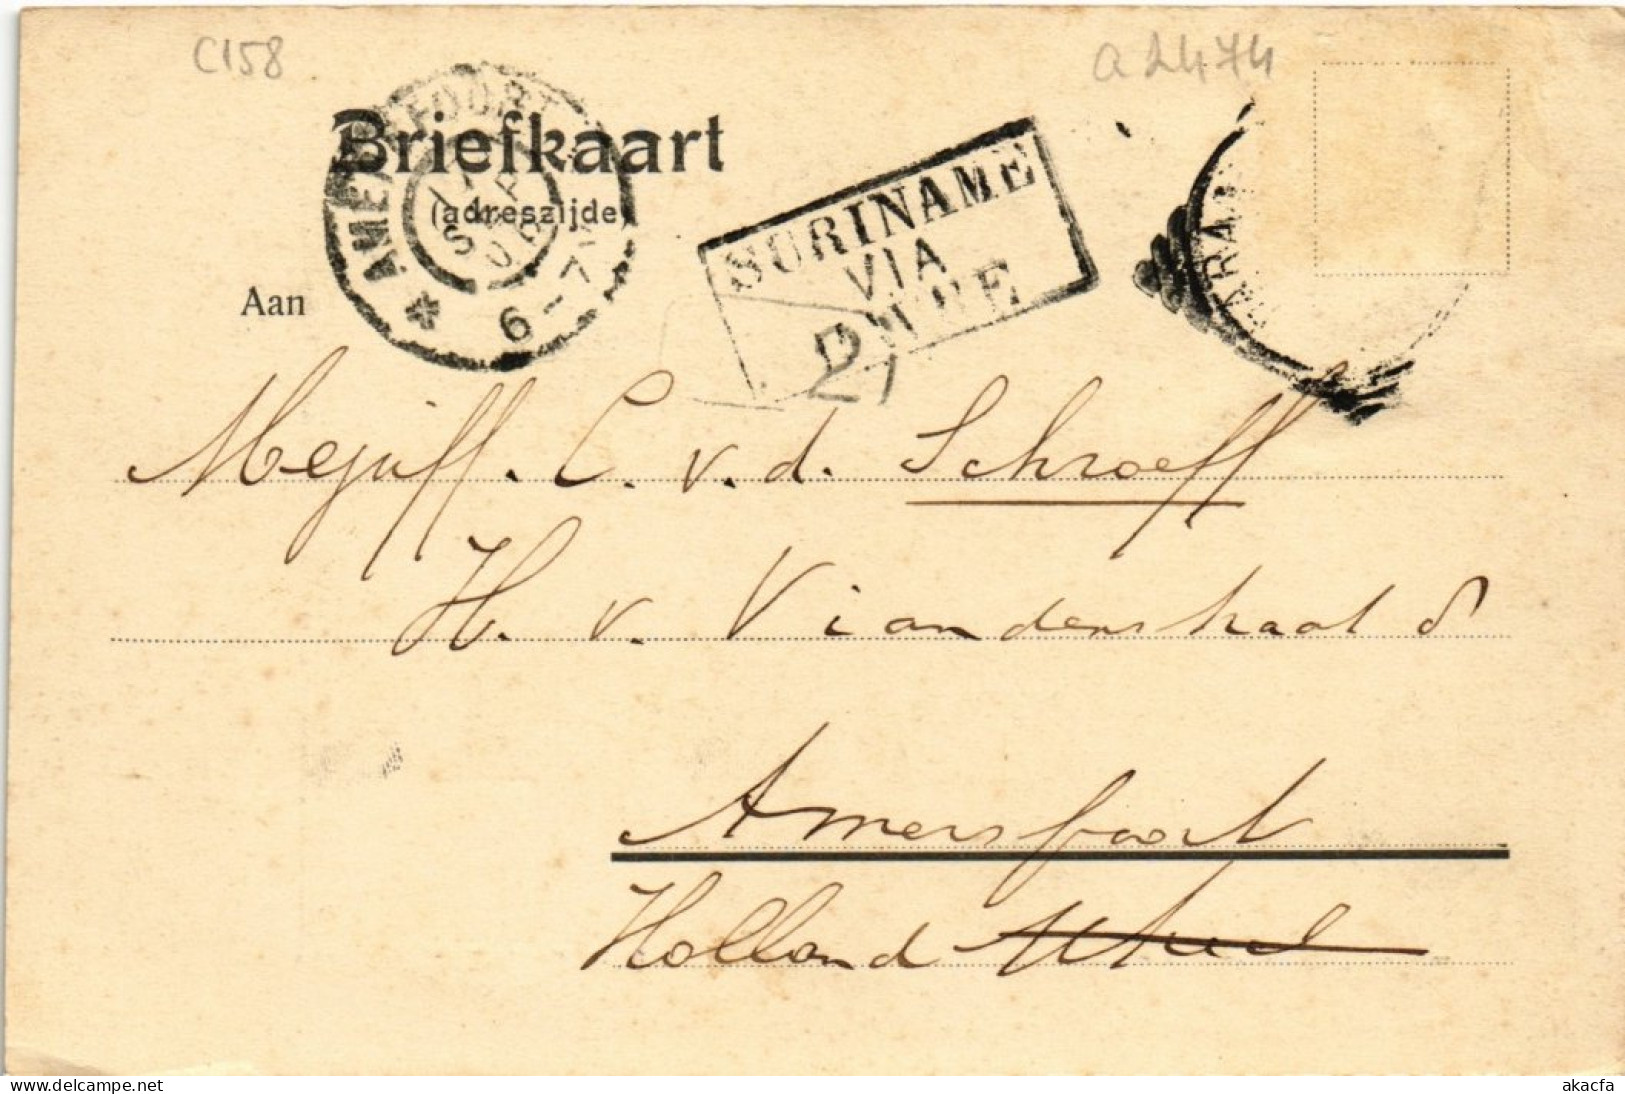 C158
a 2474
Briefkaart
(adreszijde)
AMERSFOORT
SEP
6-7
SURINAME
VIA
Aan
Mejuff. C. v. d. Schroeff
H. v. Viandenstraat 8
Amersfoort
Holland
www.delcampe.net
akacfa